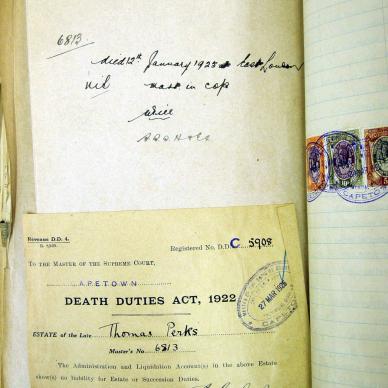 6813.
died 12th January 1925 East London
nil mass in cop
Revenue D.D. 4.
Registered No. D.D. C 5908
TO THE MASTER OF THE SUPREME COURT,
APETOWN
DEATH DUTIES ACT, 1922
27 MAR 1925
ESTATE of the Late Thomas Perks
Master's No 6813
The Administration and Liquidation Account(s) in the above Estate
show(s) no liability for Estate or Succession Duties.